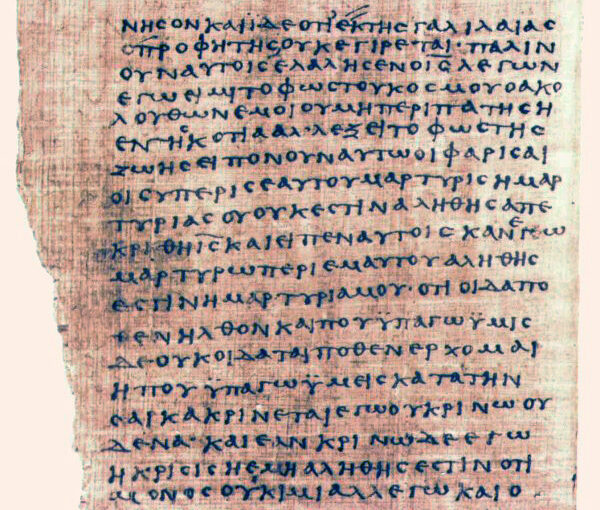 ΝΗϹΟΝΚΑΙΪΔΕΟΤΙΕΚΤΗϹΓΑΛΙΛΑΙΑϹ
ΟΠΡΟΦΗΤΗϹΟΥΚΕΓΙΡΕΤΑΙ·ΠΑΛΙΝ
ΟΥΝΑΥΤΟΙϹΕΛΑΛΗϹΕΝΟΙϹΛΕΓΩΝ
ΕΓΩΕΙΜΙΤΟΦΩϹΤΟΥΚΟϹΜΟΥΟΑΚΟ
ΛΟΥΘΩΝΕΜΟΙΟΥΜΗΠΕΡΙΠΑΤΗϹΗ
ΕΝΤΗϹΚΟΤΙΑΑΛ·ΛΕΞΕΙΤΟΦΩϹΤΗϹ
ΖΩΗϹΕΙΠΟΝΟΥΝΑΥΤΩΟΙΦΑΡΙϹΑΙ
ΟΙϹΥΠΕΡΙϹΕΑΥΤΟΥΜΑΡΤΥΡΙϹΗΜΑΡ
ΤΥΡΙΑϹΟΥΟΥΚΕϹΤΙΝΑΛΗΘΗϹΑΠΕ
ΚΡΙΘΗΙϹΚΑΙΕΙΠΕΝΑΥΤΟΙϹΚΑΝΕΓΩ
ΜΑΡΤΥΡΩΠΕΡΙΕΜΑΥΤΟΥΑΛΗΘΗϹ
ΕϹΤΙΝΗΜΑΡΤΥΡΙΑΜΟΥ·ΟΤΙΟΙΔΑΠΟ
ΘΕΝΗΛΘΟΝΚΑΙΠΟΥΫΠΑΓΩΫΜΙϹ
ΔΕΟΥΚΟΙΔΑΤΑΙΠΟΘΕΝΕΡΧΟΜΑΙ
ΗΠΟΥΫΠΑΓΩΫΜΕΙϹΚΑΤΑΤΗΝ
ϹΑΙΚΑΚΡΙΝΕΤΑΙΕΓΩΟΥΚΡΙΝΩΟΥ
ΔΕΝΑ·ΚΑΙΕΑΝΚΡΙΝΩΔΕΕΓΩ
ΗΚΡΙϹΙϹΗΕΜΗΑΛΗΘΗϹΕϹΤΙΝΟΤΙ
ΜΟΝΟϹΟΥΚΙΜΙΑΛΛΕΓΩΚΑΙΟ